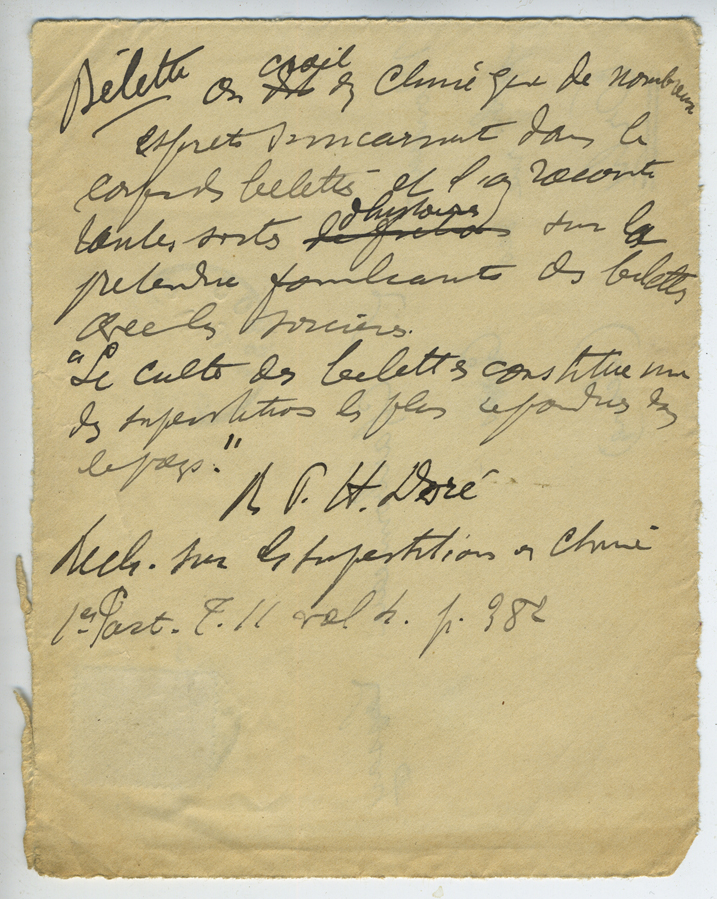 Bélette On croit en Chine que de nombreux
esprits s'incarnent dans le
corps des belettes et l'on raconte
toutes sortes d'histoires sur la
pretendue familiarité des belettes
avec les sorciers.
"Le culte des belettes constitue une
des superstitions les plus repandues dans
le pays."
R P. H. Doré
Rech. sur les superstitions en Chine
1er Part. T. II vol 4. p. 382